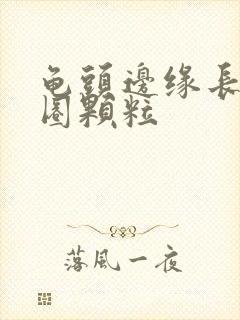 龟頭邊缘長
圈顆粒
落風一夜